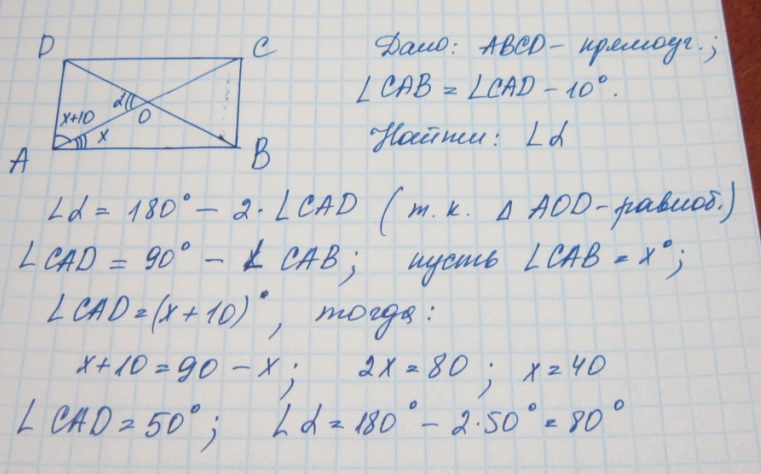 D C
Дано: ABCD - прямоуг.;
∠CAB = ∠CAD - 10°.
x+10 α O x
Найти: ∠α
A B
∠α = 180° - 2·∠CAD (т.к. △ AOD - равноб.)
∠CAD = 90° - ∠CAB; пусть ∠CAB = x°;
∠CAD = (x + 10)°, тогда:
x+10 = 90 - x; 2x = 80; x = 40
∠CAD = 50°; ∠α = 180° - 2·50° = 80°